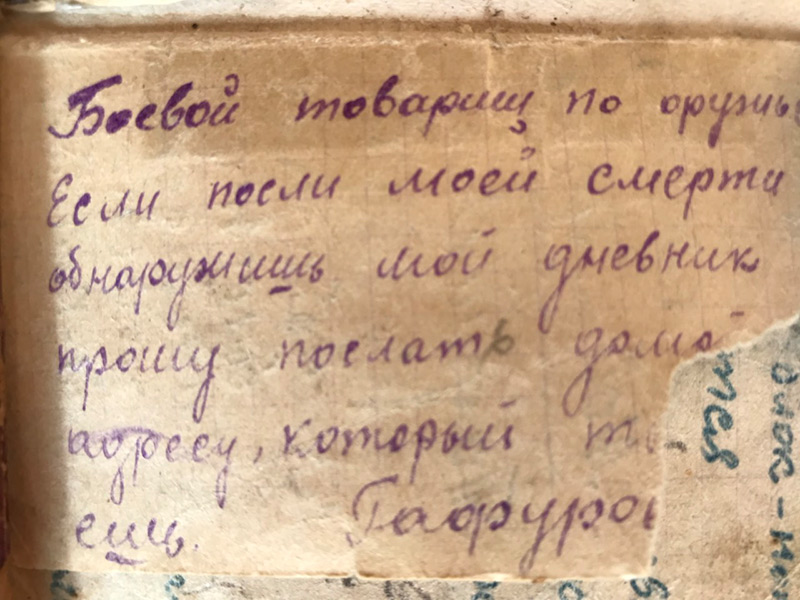 Боевой товарищ по оружь
Если посли моей смерти
обнаружишь мой дневник
прошу послать домой
адресу, который т
ешь. Гафуров